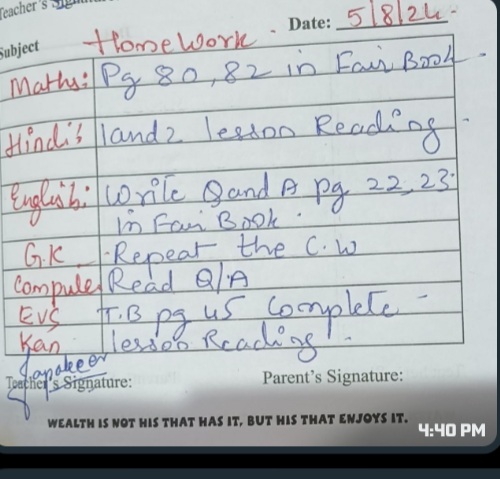 Teacher's
Date: 5/8/24.
Subject Home Work.
Maths: Pg 80, 82 in Fair Book.
Hindi: 1 and 2 lesson Reading.
English: Write Q and A pg 22, 23.
in Fair Book.
G.K Repeat the C.W
Computer Read Q/A
EVS T.B pg 45 Complete
Kan lesson Reading.
Teacher's Signature: Parent's Signature:
WEALTH IS NOT HIS THAT HAS IT, BUT HIS THAT ENJOYS IT.
4:40 PM